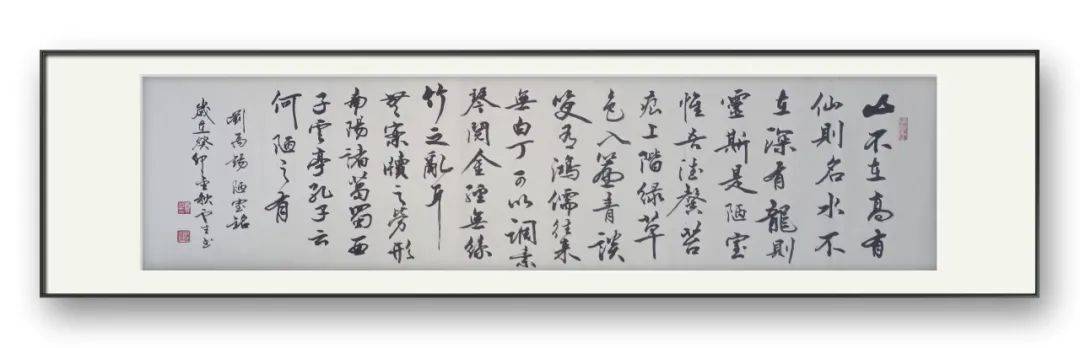 山不在高有
仙則名水不
在深有龍則
靈斯是陋室
惟吾德馨苔
痕上階綠草
色入簾青談
笑有鴻儒往來
無白丁可以調素
琴閱金經無絲
竹之亂耳
無案牘之勞形
南陽諸葛西
子雲亭孔子云
何陋之有
劉禹錫 陋室銘
歲在癸卯秋書